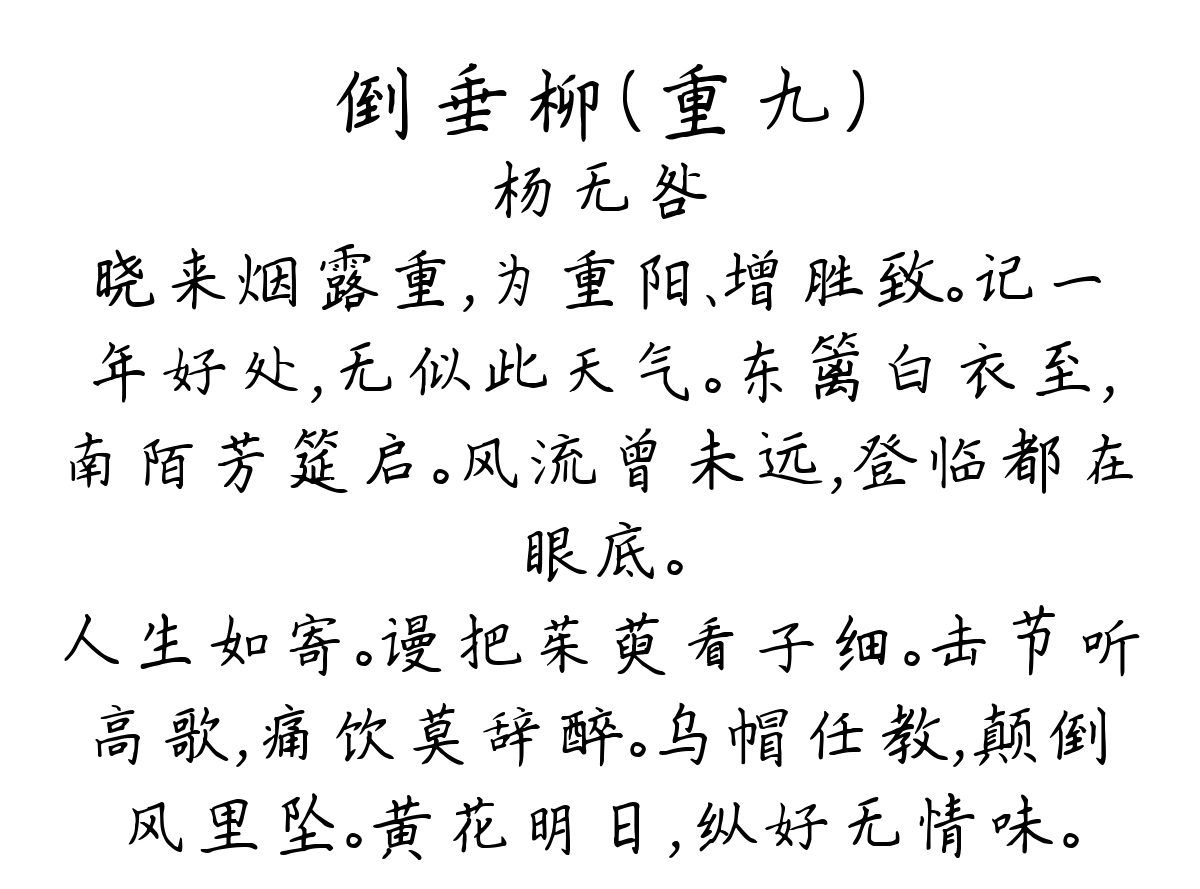 倒垂柳(重九)
杨无咎
晓来烟露重,为重阳、增胜致。记一
年好处,无似此天气。东篱白衣至,
南陌芳筵启。风流曾未远,登临都在
眼底。
人生如寄。谩把茱萸看子细。击节听
高歌,痛饮莫辞醉。乌帽任教,颠倒
风里坠。黄花明日,纵好无情味。